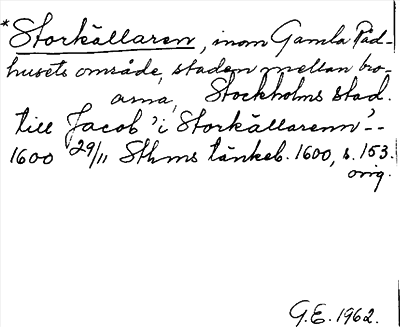 *Storkällaren, inom Gamla Råd-
husets område, staden mellan bro-
arna, Stockholms stad.
till Jacob 'i Storkällarenn' --
1600 29/11 Sthms tänkeb. 1600, s. 153.
orig.
G.E. 1962.